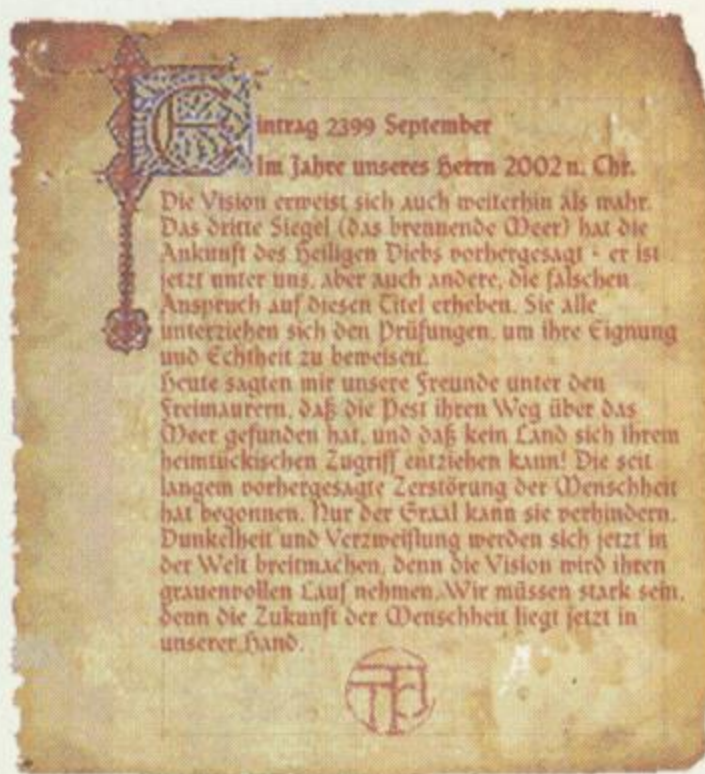 Eintrag 2399 September
Im Jahre unseres Herrn 2002 n. Chr.
Die Vision erweist sich auch weiterhin als wahr.
Das dritte Siegel (das brennende Meer) hat die
Ankunft des Heiligen Diebs vorhergesagt - er ist
jetzt unter uns, aber auch andere, die falschen
Anspruch auf diesen Titel erheben. Sie alle
unterziehen sich den Prüfungen, um ihre Eignung
und Echtheit zu beweisen.
Heute sagten mir unsere Freunde unter den
Freimaurern, daß die Pest ihren Weg über das
Meer gefunden hat, und daß kein Land sich ihrem
heimtückischen Zugriff entziehen kann! Die seit
langem vorhergesagte Zerstörung der Menschheit
hat begonnen. Nur der Graal kann sie verhindern.
Dunkelheit und Verzweiflung werden sich jetzt in
der Welt breitmachen, denn die Vision wird ihren
grauenvollen Lauf nehmen. Wir müssen stark sein,
denn die Zukunft der Menschheit liegt jetzt in
unserer Hand.